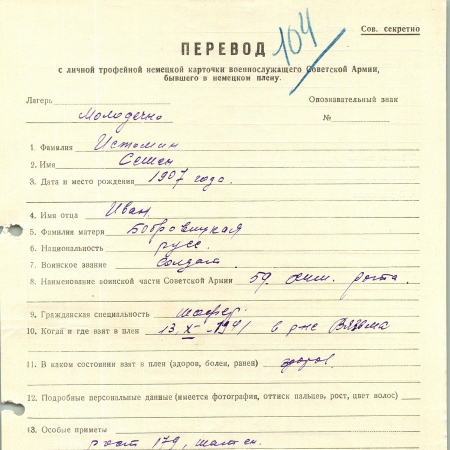 Сов. секретно
104
ПЕРЕВОД
с личной трофейной немецкой карточки военнослужащего Советской Армии,
бывшего в немецком плену.
Лагерь Опознавательный знак
Молодечно №
1. Фамилия Истомин
2. Имя Семен
3. Дата и место рождения 1907 года.
4. Имя отца Иван
5. Фамилия матери Бобровицкая
6. Национальность русс.
7. Воинское звание солдат
8. Наименование воинской части Советской Армии 59. рота.
9. Гражданская специальность шофер.
10. Когда и где взят в плен 13. X-1941 в р-не Вязьма
11. В каком состоянии взят в плен (здоров, болен, ранен) здоров
12. Подробные персональные данные (имеется фотография, оттиск пальцев, рост, цвет волос)
13. Особые приметы
рост 179, шатен.